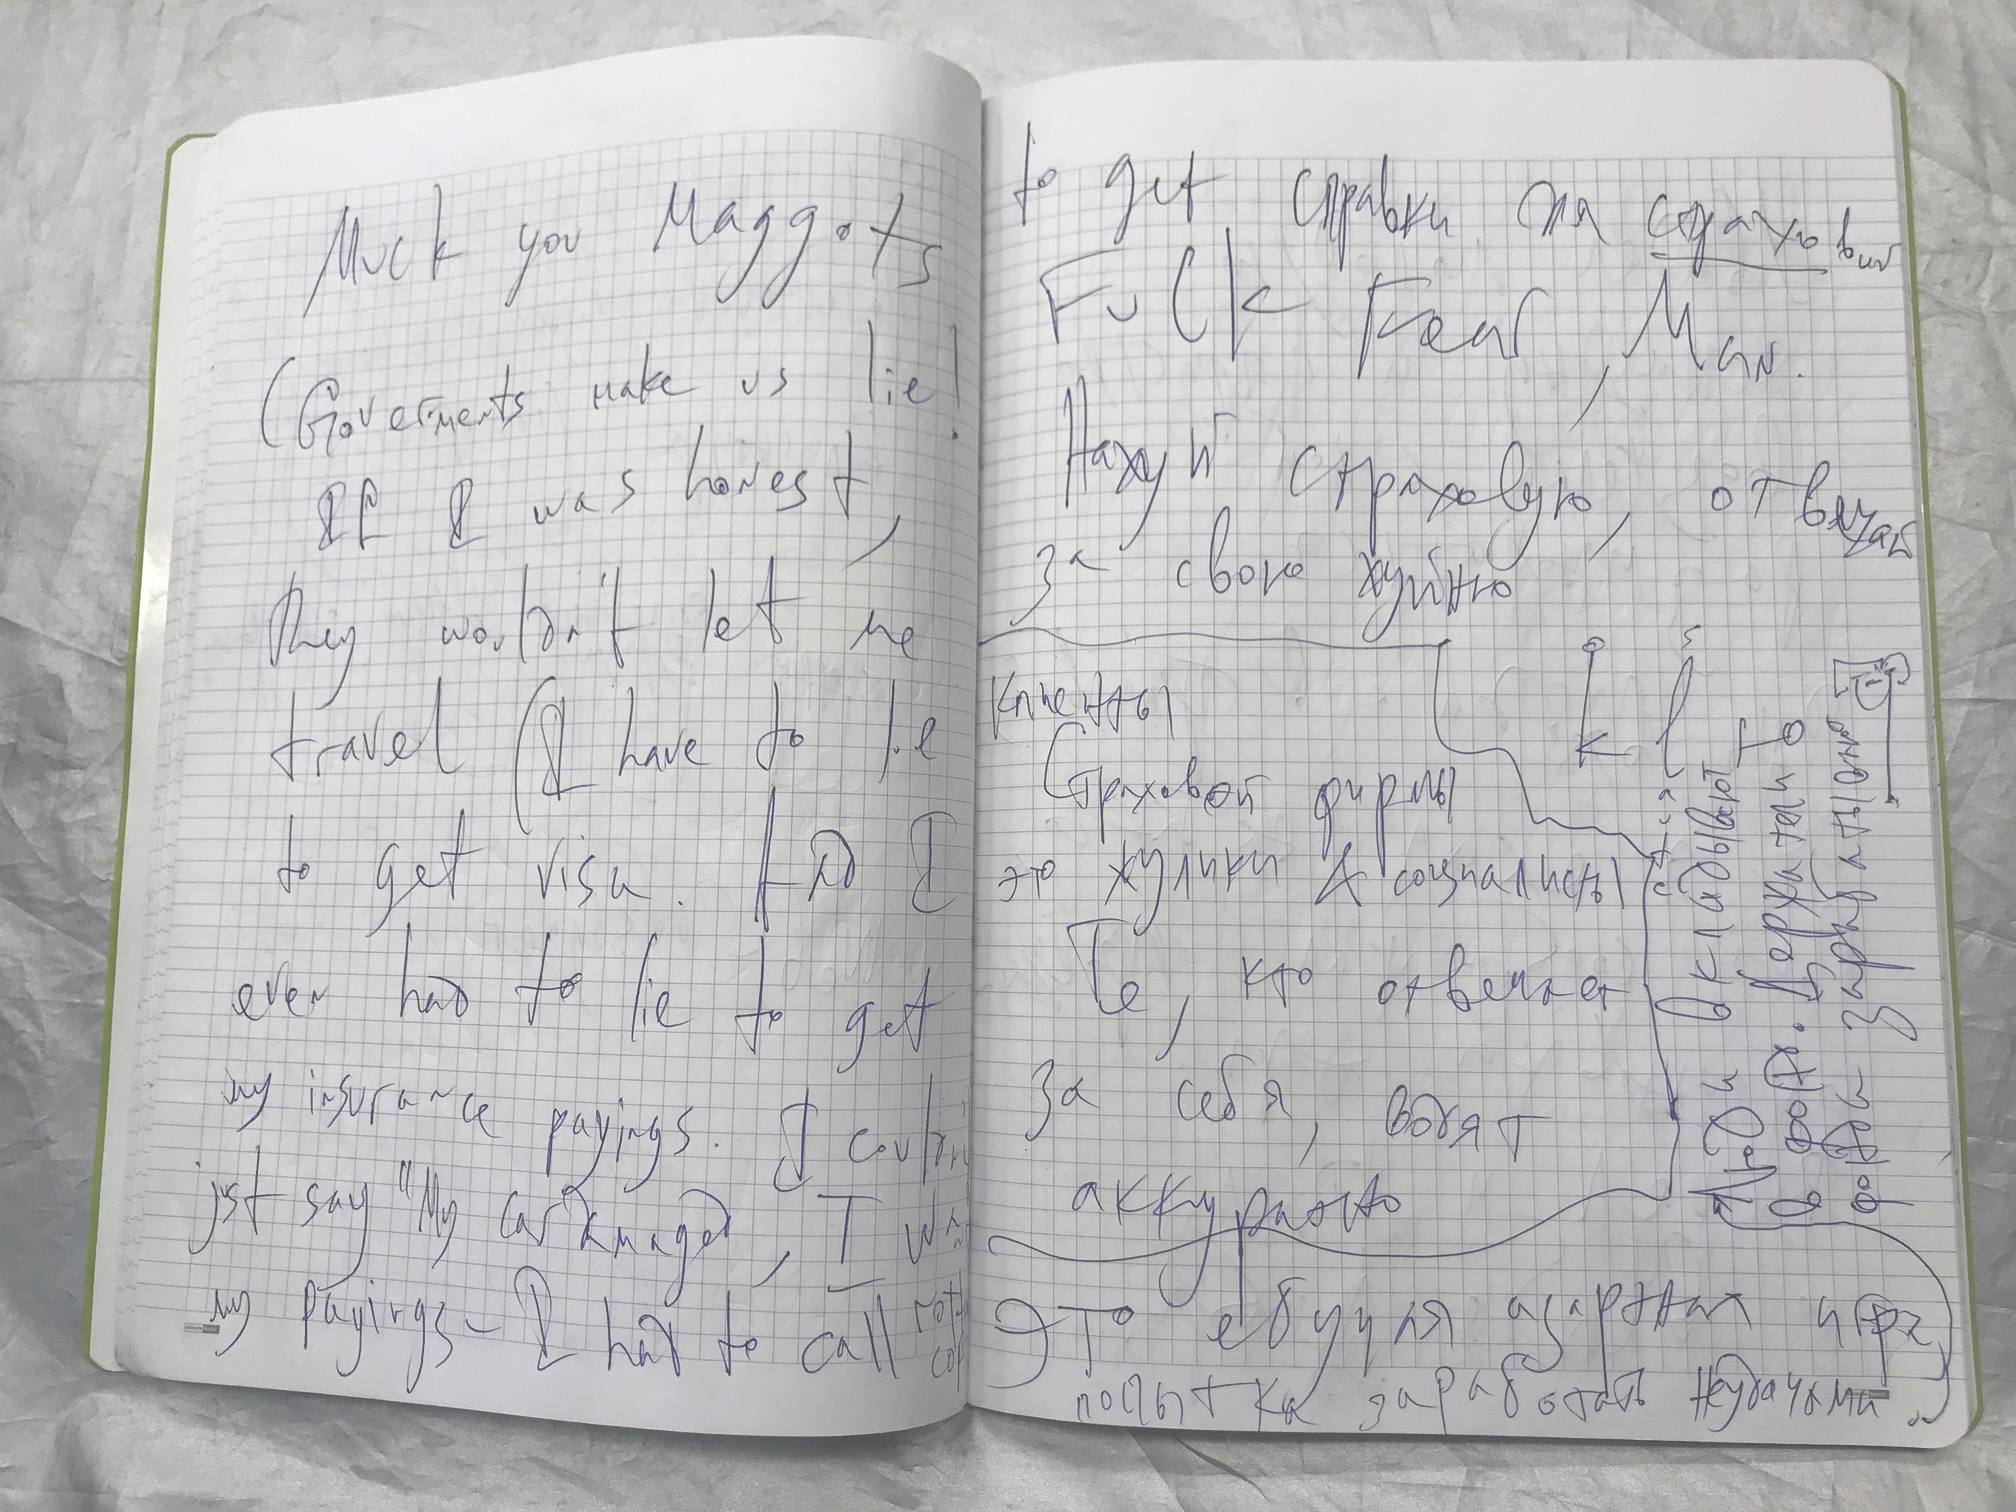 Muck you Maggots
(Goverments make us lie!
If I was honest,
they wouldn't let me
travel (I have to lie
to get visa. And I
even had to lie to get
my insurance payings. I couldn't
just say "My car damaged, I wan
my payings - I had to call
to get справки для страховой
Fuck Fear, Man.
Нахуй страховую, отвечай
за свою хуйню
Клиенты
Страховой фирмы
это жулики & социалисты
Те, кто отвечает
за себя, водят
аккуратно
Люди вкладывают
в фонд. Держатели
фонда зарабатывают
Это ебучая азартная игра,
попытка заработать неудачами